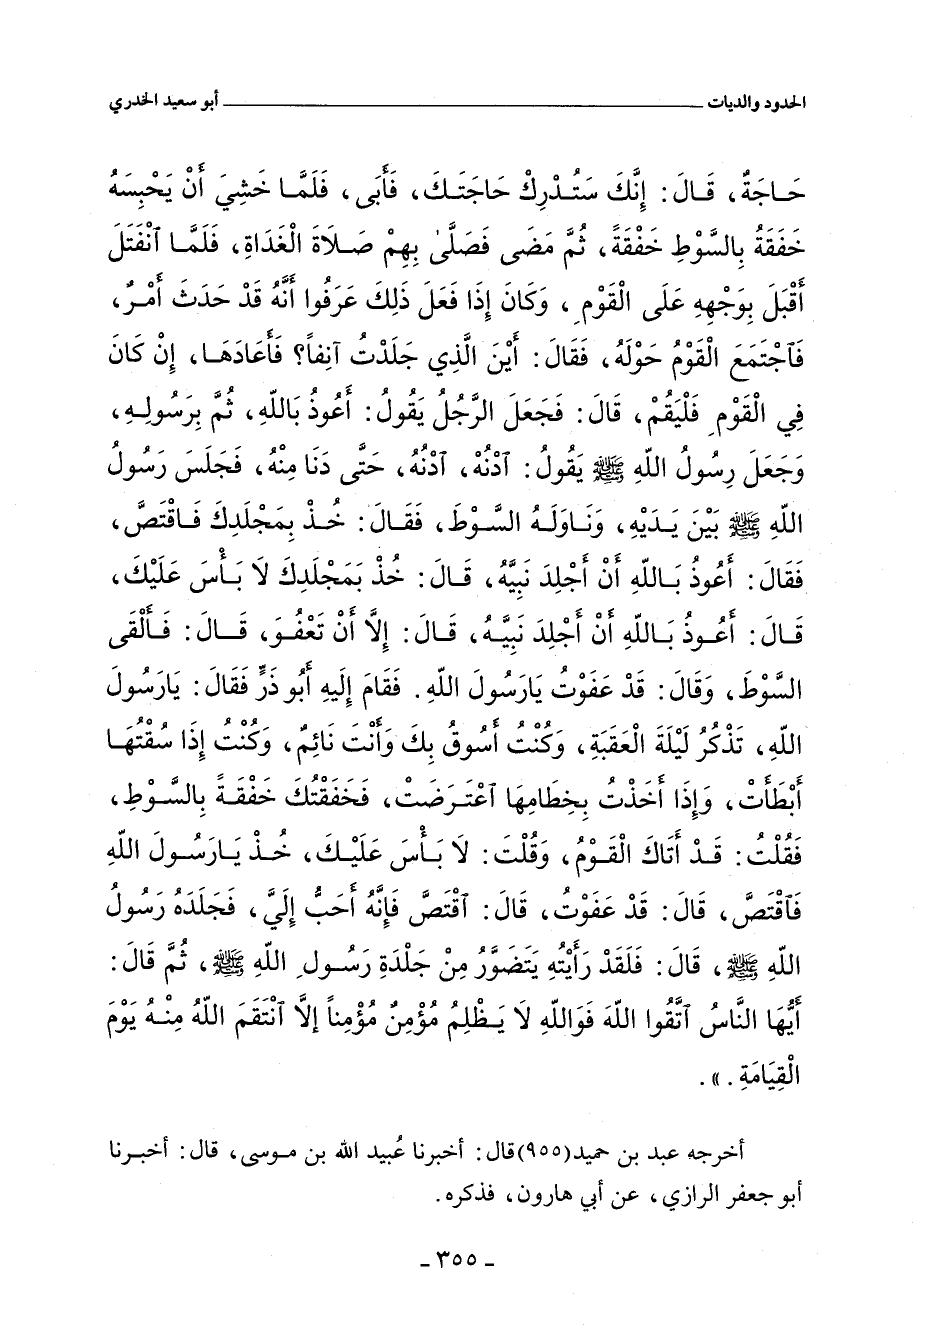 الحدود والديات ــــــــــــــــ أبو سعيد الخدري
حَاجَةٌ، قَالَ: إِنَّكَ سَتُدْرِكْ حَاجَتَكَ، فَأَبَى، فَلَمَّا خَشِيَ أَنْ يَحْبِسَهُ
خَفَقَهُ بِالسَّوْطِ خَفْقَةً، ثُمَّ مَضَى فَصَلَّى بِهِمْ صَلَاةَ الْغَدَاةِ، فَلَمَّا ٱنْفَتَلَ
أَقْبَلَ بِوَجْهِهِ عَلَى الْقَوْمِ، وَكَانَ إِذَا فَعَلَ ذَلِكَ عَرَفُوا أَنَّهُ قَدْ حَدَثَ أَمْرٌ،
فَٱجْتَمَعَ الْقَوْمُ حَوْلَهُ، فَقَالَ: أَيْنَ الَّذِي جَلَدْتُ آنِفاً؟ فَأَعَادَهَا، إِنْ كَانَ
فِي الْقَوْمِ فَلْيَقُمْ، قَالَ: فَجَعَلَ الرَّجُلُ يَقُولُ: أَعُوذُ بَاللّهِ، ثُمَّ بِرَسُولِهِ،
وَجَعَلَ رِسُولُ اللّهِ ﷺ يَقُولُ: ٱدْنُهْ، ٱدْنُهُ، حَتَّى دَنَا مِنْهُ، فَجَلَسَ رَسُولُ
اللّهِ ﷺ بَيْنَ يَدَيْهِ، وَنَاوَلَهُ السَّوْطَ، فَقَالَ: خُذْ بِمَجْلَدِكَ فَاقْتَصَّ،
فَقَالَ: أَعُوذُ بَاللّهِ أَنْ أَجْلِدَ نَبِيَّهُ، قَالَ: خُذْ بَمَجْلَدِكَ لَا بَأْسَ عَلَيْكَ،
قَالَ: أَعُوذُ بَاللّهِ أَنْ أَجْلِدَ نَبِيَّهُ، قَالَ: إِلَّا أَنْ تَعْفُوَ، قَالَ: فَأَلْقَى
السَّوْطَ، وَقَالَ: قَدْ عَفَوْتُ يَارَسُولَ اللّهِ. فَقَامَ إِلَيهِ أَبُو ذَرٍّ فَقَالَ: يَارَسُولَ
اللّهِ، تَذْكُرُ لَيْلَةَ الْعَقَبَةِ، وَكُنْتُ أَسُوقُ بِكَ وَأَنْتَ نَائِمٌ، وَكُنْتُ إِذَا سُقْتُهَا
أَبْطَأَتْ، وَإِذَا أَخَذْتُ بِخِطَامِهَا ٱعْتَرَضَتْ، فَخَفَقْتُكَ خَفْقَةً بِالسَّوْطِ،
فَقُلْتُ: قَدْ أَتَاكَ الْقَوْمُ، وَقُلْتَ: لَا بَأْسَ عَلَيْكَ، خُذْ يَارَسُولَ اللّهِ
فَٱقْتَصَّ، قَالَ: قَدْ عَفَوْتُ، قَالَ: ٱقْتَصَّ فَإِنَّهُ أَحَبُّ إِلَيَّ، فَجَلَدَهُ رَسُولُ
اللّهِ ﷺ، قَالَ: فَلَقَدْ رَأَيْتِهِ يَتَضَوَّرُ مِنْ جَلْدَةِ رَسُولِ اللّهِ ﷺ، ثُمَّ قَالَ:
أَيُّهَا النَّاسُ ٱتَّقُوا اللّهَ فَوَاللّهِ لَا يَظْلِمُ مُؤْمِنٌ مُؤْمِناً إلَّا ٱنْتَقَمَ اللّهُ مِنْهُ يَوْمَ
الْقِيَامَةِ.».
أخرجه عبد بن حميد(٩٥٥)قال: أخبرنا عُبيد الله بن موسى، قال: أخبرنا
أبو جعفر الرازي، عن أبي هارون، فذكره.
- ٣٥٥ -